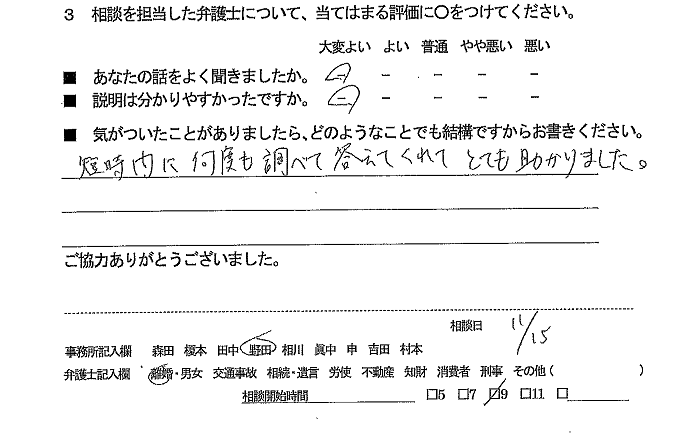 3 相談を担当した弁護士について、当てはまる評価に〇をつけてください。
大変よい よい 普通 やや悪い 悪い
■ あなたの話をよく聞きましたか。 － － － － －
■ 説明は分かりやすかったですか。 － － － － －
■ 気がついたことがありましたら、どのようなことでも結構ですからお書きください。
短時内に何度も調べて答えてくれてとても助かりました。
ご協力ありがとうございました。
相談日 11/15
事務所記入欄 森田 榎本 田中 野田 相川 眞中 申 吉田 村本
弁護士記入欄 離婚・男女 交通事故 相続・遺言 労使 不動産 知財 消費者 刑事 その他( )
相談開始時間 □5 □7 □9 □11 □